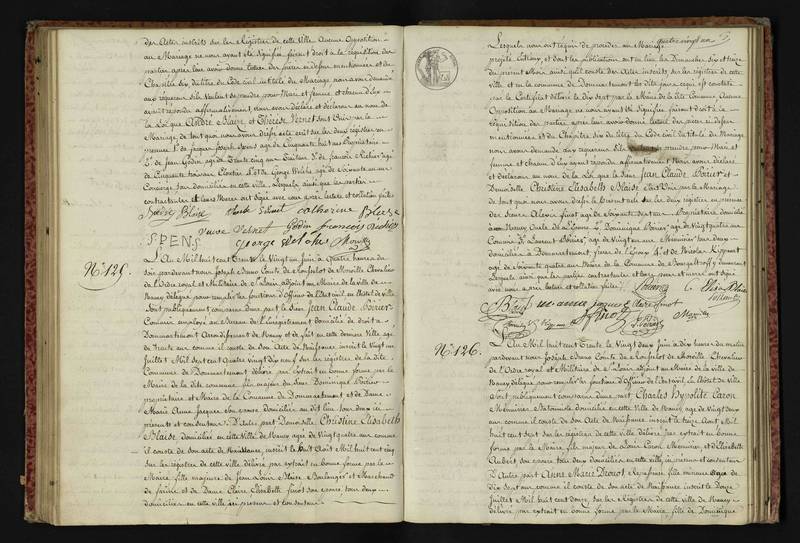 des Actes inscrits sur les Registres de cette Ville Aucune Opposition à
au Mariage ne nous ayant été Signifiée faisant droit à la réquisition des
parties après leur avoir donné lecture des pièces ci-dessus mentionnées et du
Chapitre Six du titre du Code civil intitulé du Mariage, nous avons demandé
aux requérans s'ils Veulent se prendre pour Mari et femme et chacun d'eux
ayant répondu affirmativement, Nous avons déclaré et déclarons au nom de
la Loi que André Blaise et Thérèse Vernet sont Unis par le
Mariage, de tout quoi nous avons dressé acte écrit sur les deux registres en
présence 1° de Jacques Joseph Spens agé de Cinquante huit ans Propriétaire
2° de Jean Godin agé de Trente cinq ans 3° de françois
de Cinquante 4° de George agé de Soixante et un an
Concierge tous domiciliés en cette ville, Lesquels ainsi que les parties
contractantes et leurs Meres ont Signé avec nous après lecture et collation faites
André Blaise Vernet catherine Blaise
veuve Vernet Godin françois
SPENS george
N° 125.
L'An Mil huit cent Trente le Vingt un Juin à quatre heures du
soir pardevant nous Joseph Dieudonné Comte de Morville Chevalier
de l'Ordre royal et Militaire de St Louis adjoint au Maire de la ville de
Nancy délégué pour remplir les fonctions d'Officier de l'Etat civil en l'hôtel de ville
Sont publiquement comparus d'une part le Sieur Jean Claude Poirier
Commis employé au Bureau de l'Enregistrement domicilié de droit à
Dommartemont Arrondissement de Nancy et de fait en cette dernière Ville agé
de Trente ans comme il conste de son Acte de Naissance inscrit le Vingt un
Juillet Mil sept cent quatre vingt dix neuf sur les registres de la dite
Commune de Dommartemont, délivré par extrait en bonne forme par le
Maire de la dite commune fils majeur du Sieur Dominique Poirier
propriétaire et Maire de la Commune de Dommartemont et de Dame
Marie Anne Jacques son épouse domiciliés au dit lieu tous deux ici
présens et consentans D'autre part Demoiselle Christine Elisabeth
Blaise domiciliée en cette Ville de Nancy agée de Vingt quatre ans comme
il conste de son acte de Naissance inscrit le huit Aoüt Mil huit cent cinq
sur les registres de cette ville délivré par extrait en bonne forme par le
Maire fille majeure de Jean Louis Blaise Boulanger et Marchand
de farine et de Dame Claire Elisabeth son épouse tous deux
domiciliés en cette ville ici présens et consentans
quatre vingt un
Lesquels nous ont requis de procéder au Mariage
projeté entr'eux, et dont les publications ont eu lieu les Dimanches Six et treize
du présent Mois ainsi qu'il conste des Actes inscrits sur les registres de cette
ville et en la commune de Dommartemont les dits jours ce qui est constaté
par le Certificat délivré le dix sept par le Maire de la dite Commune, Aucune
Opposition au Mariage ne nous ayant été Signifiée faisant droit à la
réquisition des parties après leur avoir donné lecture des pièces ci-dessus
mentionnées et du Chapitre Six du titre du Code civil du titre du Mariage
nous avons demandé aux requérans s'ils veulent se prendre pour Mari et
femme et chacun d'eux ayant répondu affirmativement Nous avons déclaré
et déclarons au nom de la Loi que le Sieur Jean Claude Poirier et
Demoiselle Christine Elisabeth Blaise sont Unis par le Mariage
de tout quoi nous avons dressé le présent acte sur les deux registres en présence
des Sieurs agé de Soixante sept ans Propriétaire domicilié
à Nancy Oncle de l'Epouse 2° Dominique Poirier agé de Vingt quatre ans
Commis 3° Laurent Poirier, agé de Vingt un ans Menuisier tous deux
domiciliés à Dommartemont, frères de l'Epoux 4° et de Nicolas
agé de Soixante quatre ans Maire de la Commune de
Lesquels ainsi que les parties contractantes et leurs pères et mères ont signé
avec nous après lecture et collation faites
Poirier C. Elisabeth Blaise
Blaise m anne jacques
N° 126.
L'An Mil huit cent Trente le Vingt deux Juin à dix heures du matin
pardevant nous Joseph Dieudonné Comte de Morville Chevalier
de l'Ordre royal et Militaire de St Louis adjoint au Maire de la ville de
Nancy délégué pour remplir les fonctions d'Officier de l'Etat civil, en l'hôtel de ville
Sont publiquement comparus d'une part Charles Hypolite Caron
Menuisier domicilié en cette Ville de Nancy agé de Vingt deux
ans comme il conste de son Acte de Naissance inscrit le treize Aout Mil
huit cent sept sur les registres de cette ville délivré par extrait en bonne
forme par le Maire, fils majeur de Louis Caron Menuisier, et d'Elisabeth
Aubert son épouse tous deux domiciliés en cette ville, ici présens et consentans
D'autre part Anne Marie Drouot, Repasseuse fille mineure agée de
dix sept ans comme il conste de son acte de Naissance inscrit le Douze
Juillet Mil huit cent douze sur les Registres de cette ville de Nancy
délivré par extrait en bonne forme par le Maire, fille de Dominique